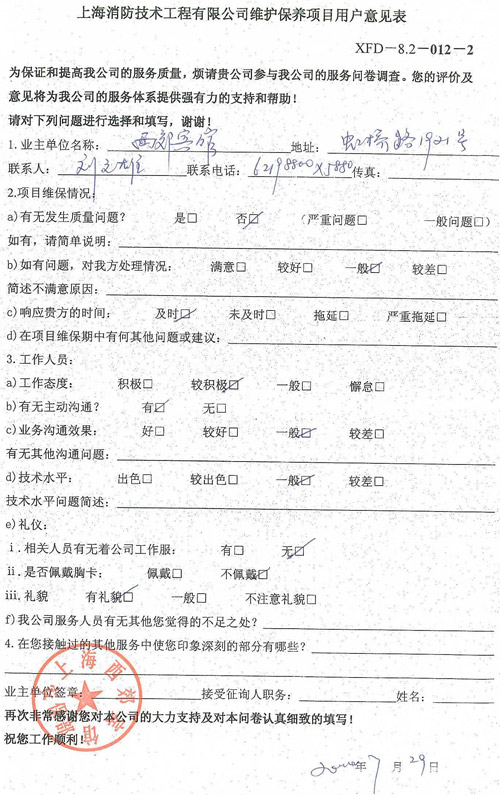 上海消防技术工程有限公司维护保养项目用户意见表
XFD－8.2－012－2
为保证和提高我公司的服务质量，烦请贵公司参与我公司的服务问卷调查。您的评价及
意见将为我公司的服务体系提供强有力的支持和帮助！
请对下列问题进行选择和填写，谢谢！
1.业主单位名称：西郊宾馆 地址：虹桥路1921号
联系人：刘文雄 联系电话：62198800X5880 传真：
2.项目维保情况：
a)有无发生质量问题？ 是□ 否☑ （严重问题□ 一般问题□）
如有，请简单说明：
b)如有问题，对我方处理情况： 满意□ 较好□ 一般☑ 较差□
简述不满意原因：
c)响应贵方的时间： 及时☑ 未及时□ 拖延□ 严重拖延□
d)在项目维保期中有何其他问题或建议：
3.工作人员：
a)工作态度： 积极□ 较积极☑ 一般□ 懈怠□
b)有无主动沟通？ 有☑ 无□
c)业务沟通效果： 好□ 较好□ 一般☑ 较差□
有无其他沟通问题：
d)技术水平： 出色□ 较出色□ 一般☑ 较差□
技术水平问题简述：
e)礼仪：
i.相关人员有无着公司工作服： 有□ 无☑
ii.是否佩戴胸卡： 佩戴□ 不佩戴☑
iii.礼貌 有礼貌☑ 一般□ 不注意礼貌□
f)我公司服务人员有无其他您觉得的不足之处？
4.在您接触过的其他服务中使您印象深刻的部分有哪些？
上海西郊宾馆
业主单位签章： 接受征询人职务： 姓名：
再次非常感谢您对本公司的大力支持及对本问卷认真细致的填写！
祝您工作顺利！
年7月29日